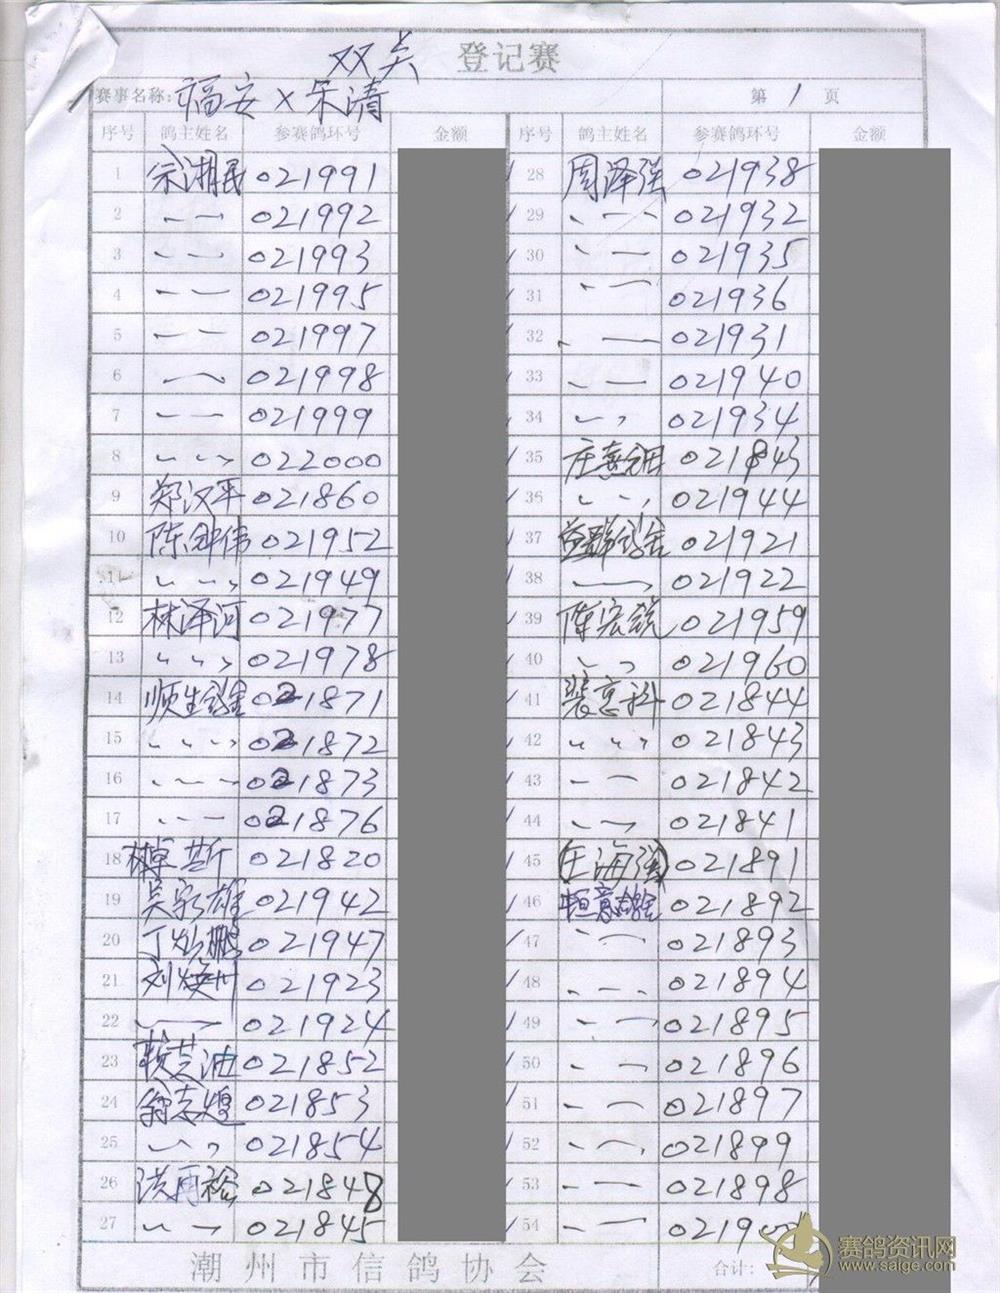 双关 登记赛
赛事名称: 福安 x 乐清 第 1 页
序号 鸽主姓名 参赛鸽环号 金额 序号 鸽主姓名 参赛鸽环号 金额
1 余湘民 021991 28 周泽强 021938
2 〃 021992 29 〃 021932
3 〃 021993 30 〃 021935
4 〃 021995 31 〃 021936
5 〃 021997 32 〃 021931
6 〃 021998 33 〃 021940
7 〃 021999 34 〃 021934
8 〃 022000 35 021843
9 郑汉平 021860 36 〃 021944
10 陈钟伟 021952 37 021921
11 〃 021949 38 〃 021922
12 林泽河 021977 39 陈宏锐 021959
13 〃 021978 40 〃 021960
14 顺生鸽舍 021871 41 裴意科 021844
15 〃 021872 42 〃 021843
16 〃 021873 43 〃 021842
17 〃 021876 44 〃 021841
18 林卓斯 021820 45 (王海强) 021891
19 吴家雄 021942 46 恒意鸽舍 021892
20 丁灿鹏 021947 47 〃 021893
21 刘焕州 021923 48 〃 021894
22 〃 021924 49 〃 021895
23 赖芝油 021852 50 〃 021896
24 翁志煌 021853 51 〃 021897
25 〃 021854 52 〃 021899
26 洪再裕 021848 53 〃 021898
27 〃 021845 54 〃
潮州市信鸽协会 合计:
赛鸽资讯网
www.saige.com